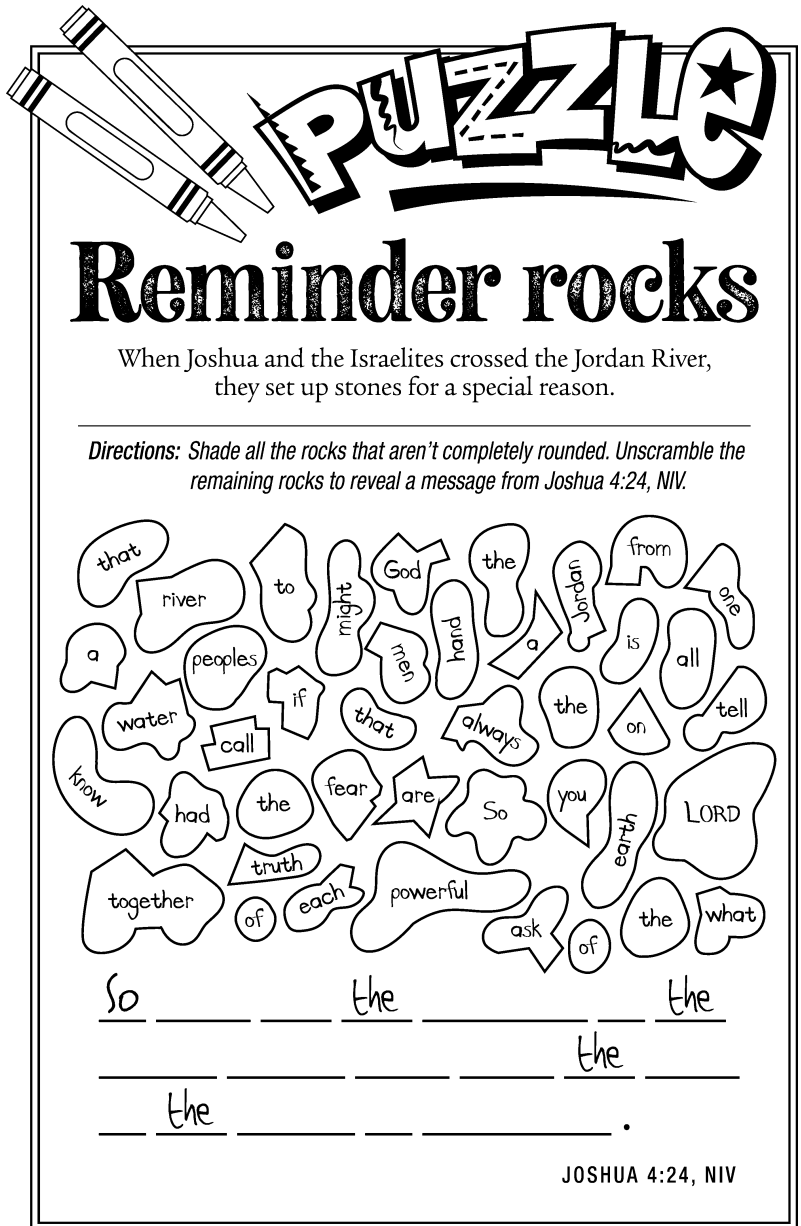 PUZZLE
Reminder rocks
When Joshua and the Israelites crossed the Jordan River,
they set up stones for a special reason.
Directions: Shade all the rocks that aren't completely rounded. Unscramble the
remaining rocks to reveal a message from Joshua 4:24, NIV.
that
river
to
might
God
the
Jordan
from
one
a
peoples
if
men
hand
a
is
all
water
call
that
always
the
on
tell
know
had
the
fear
are
So
you
earth
LORD
together
truth
of
each
powerful
ask
of
the
what
So the the
the
the .
JOSHUA 4:24, NIV